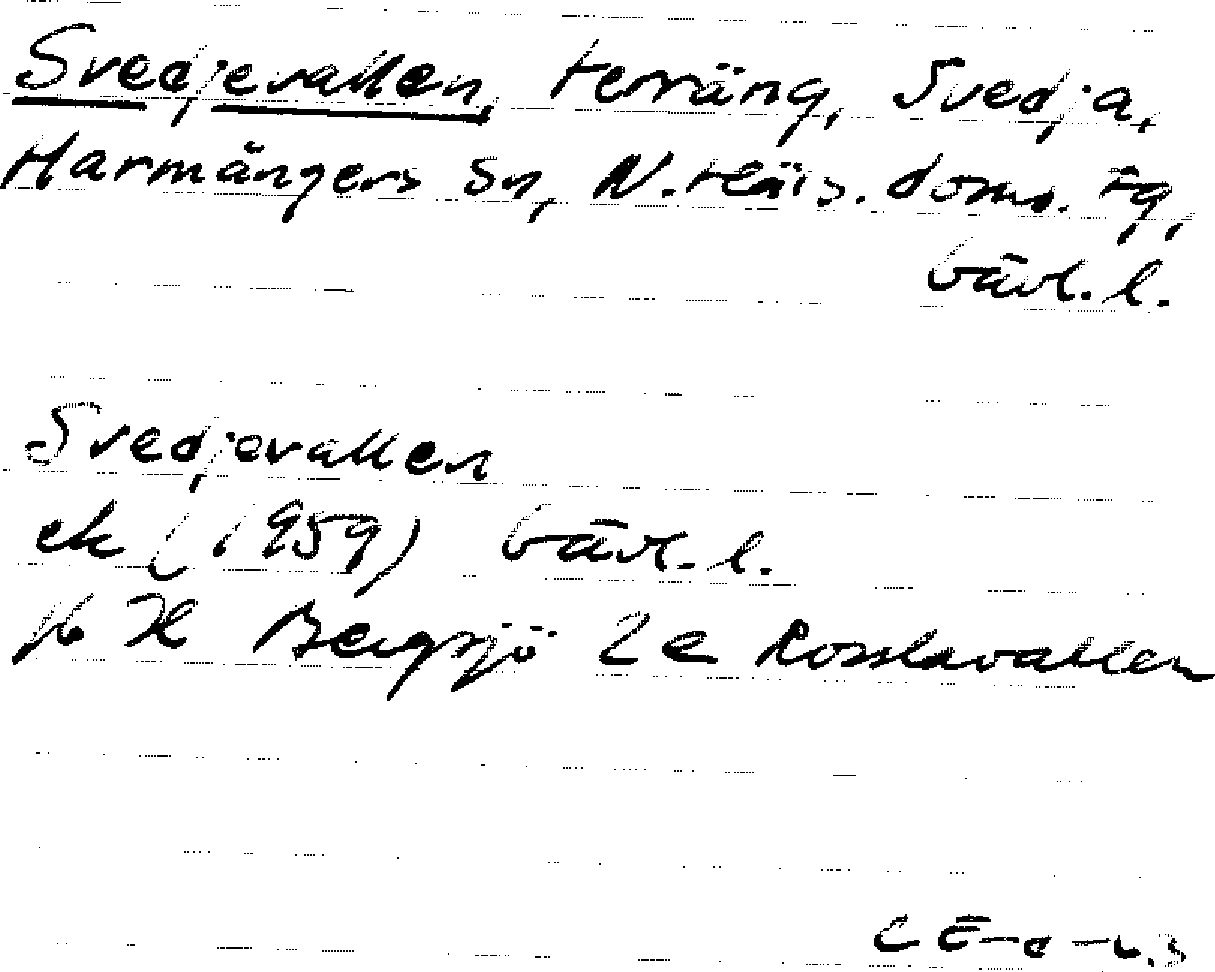 Svedjevallen, terräng, Svedja,
Harmångers sn, N. Häls. doms. fg,
Gävl. l.
Svedjevallen
ek (1959) Gävl. l.
16 H Bergsjö 2 e Rosslavallen